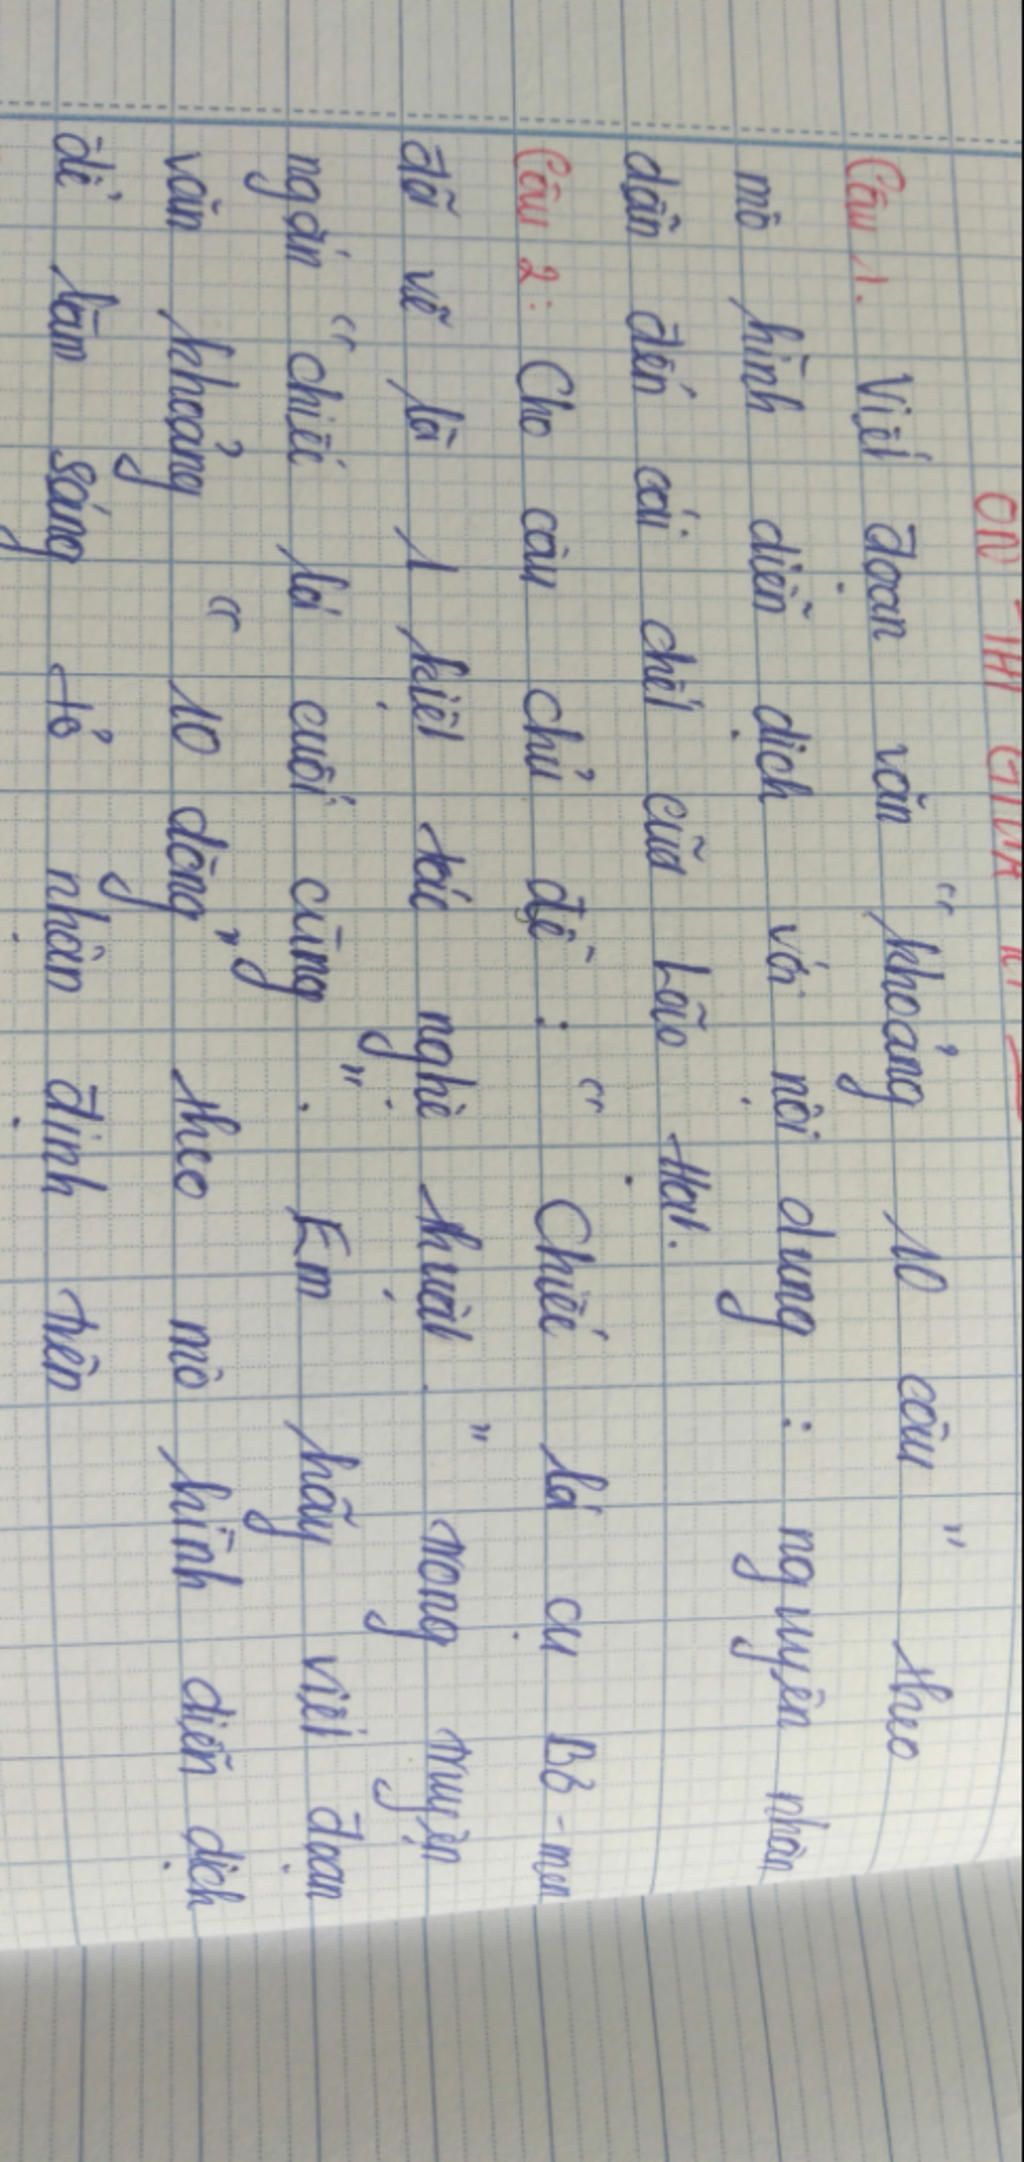 ÔN THI GIỮA KÌ
Câu 1. Viết đoạn văn "khoảng 10 câu" theo
mô hình diễn dịch với nội dung : nguyên nhân
dẫn đến cái chết của Lão Hạc.
Câu 2: Cho câu chủ đề : " Chiếc lá cụ Bơ-men
đã vẽ là 1 kiệt tác nghệ thuật." trong truyện
ngắn "chiếc lá cuối cùng". Em hãy viết đoạn
văn khoảng "10 dòng" theo mô hình diễn dịch
để làm sáng tỏ nhận định trên